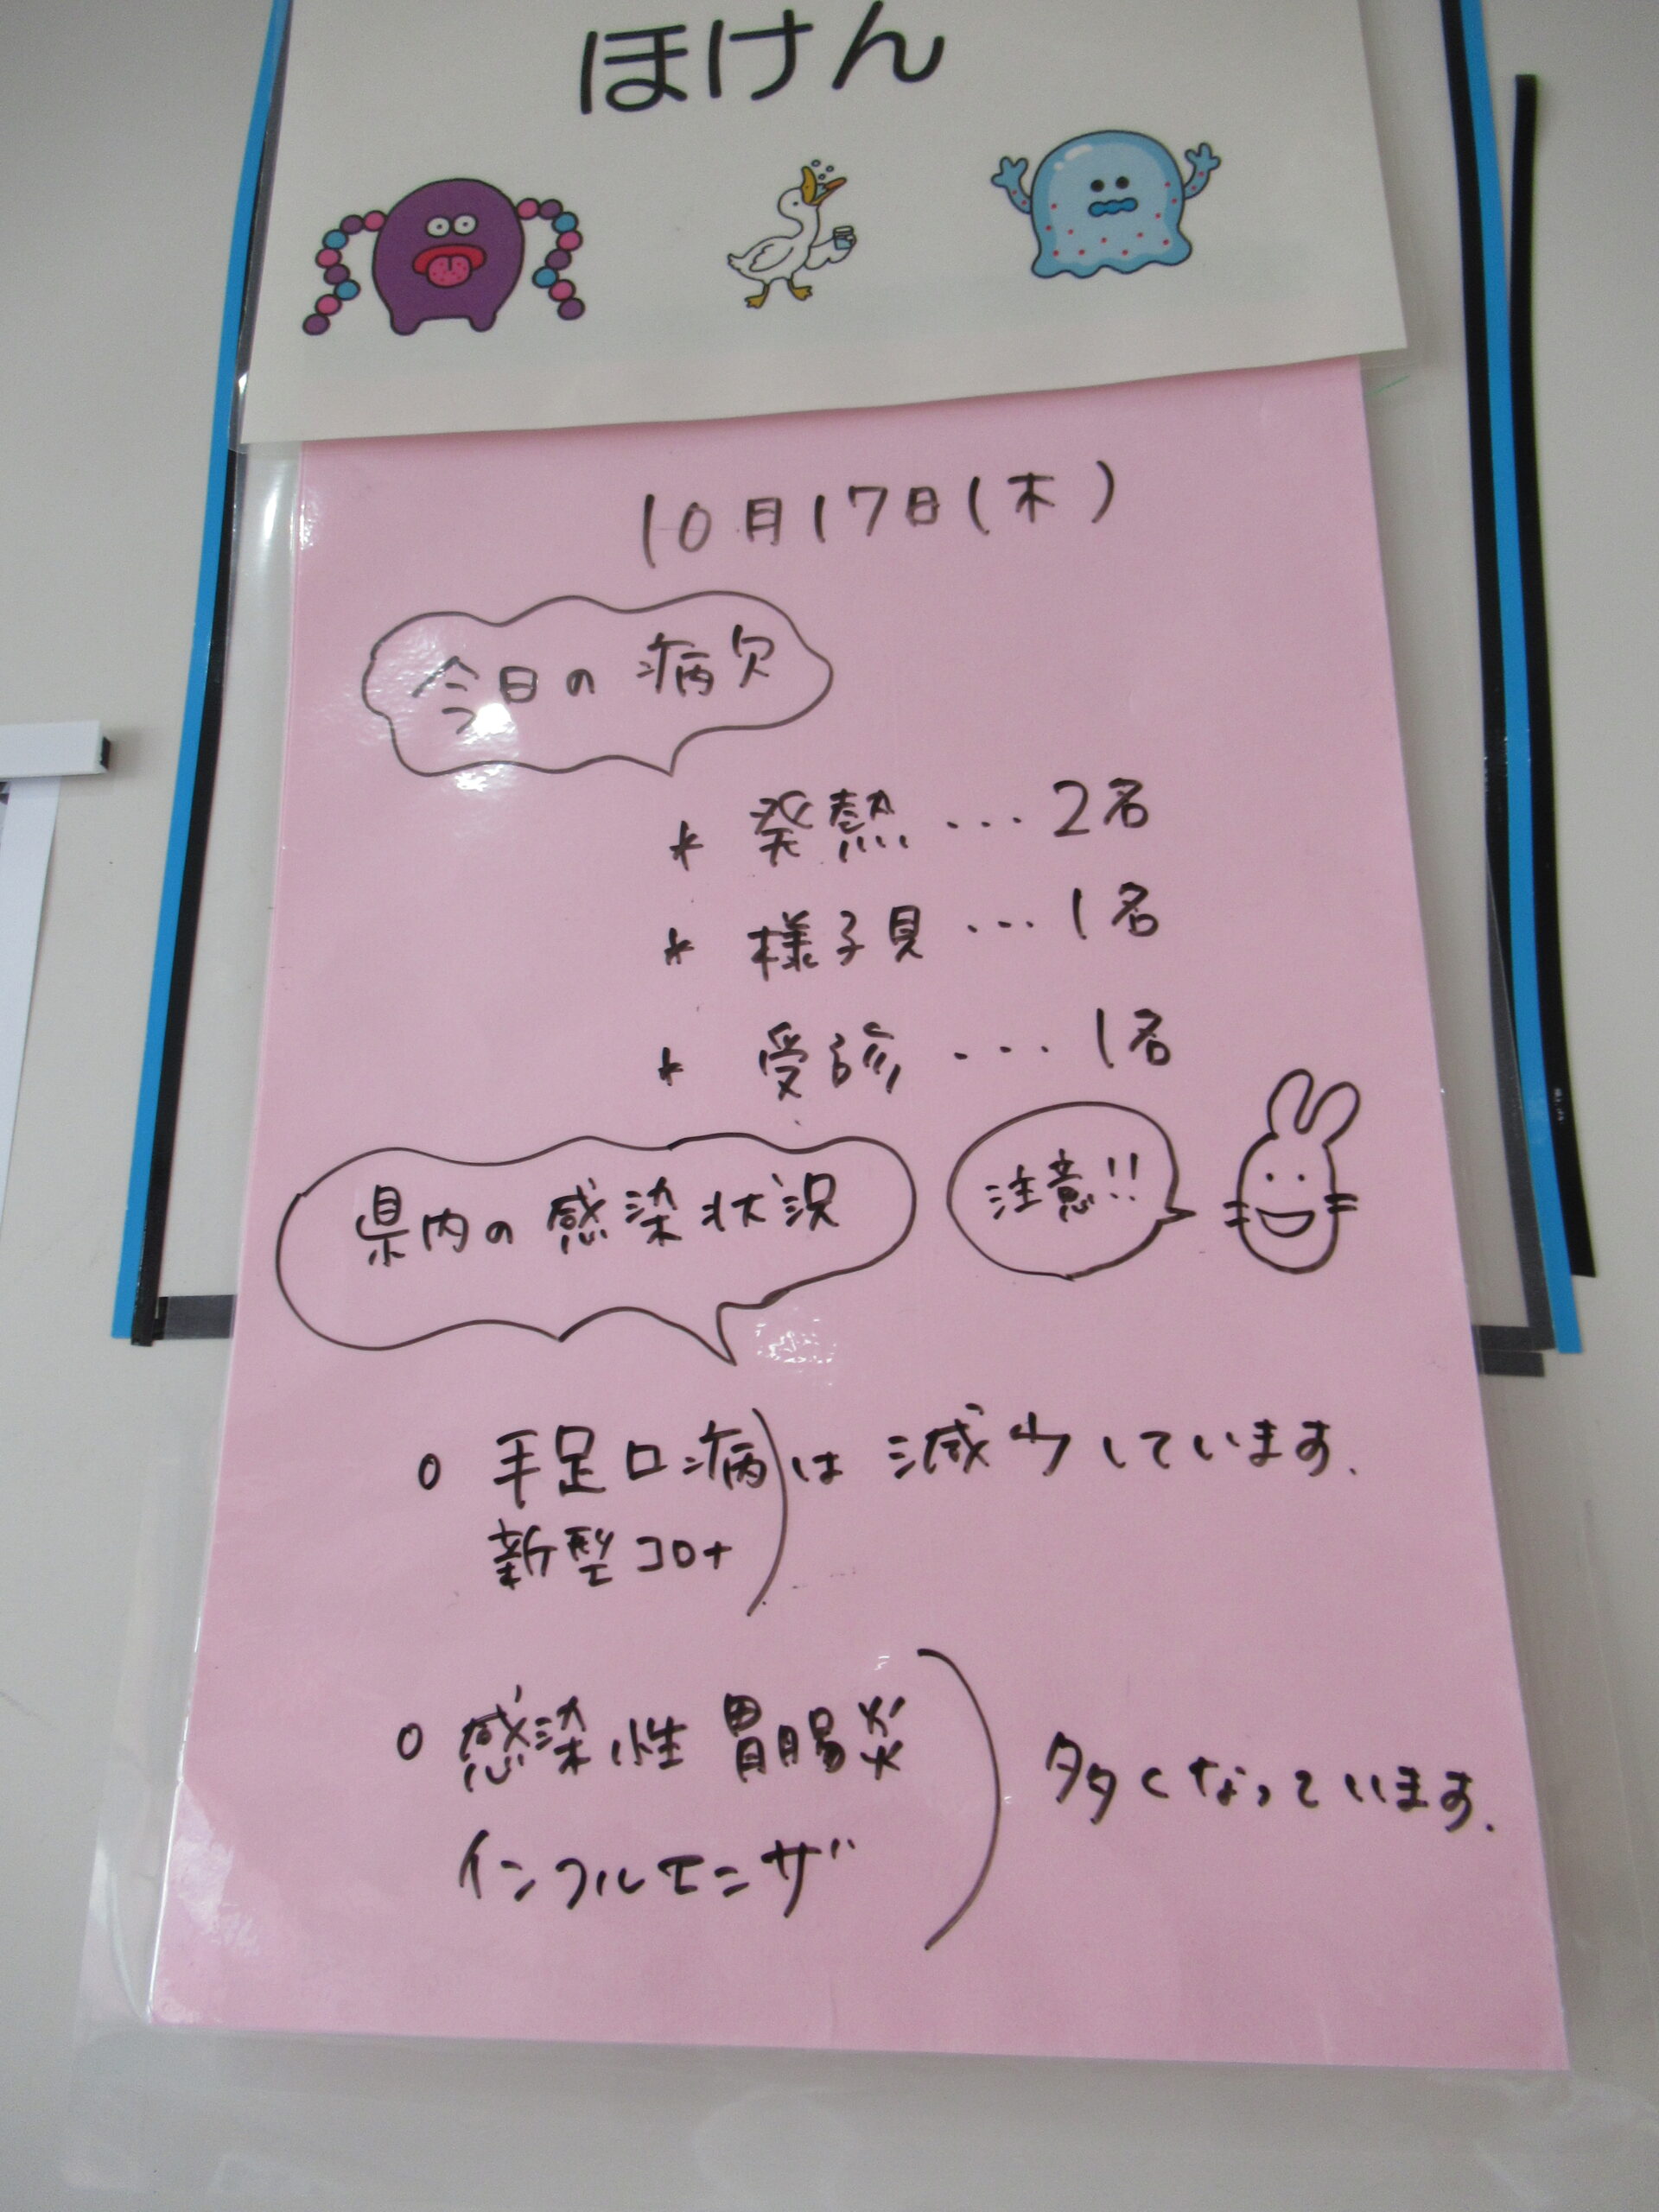 ほけん
10月17日(木)
今日の病欠
* 発熱 ... 2名
* 様子見 ... 1名
* 受診 ... 1名
県内の感染状況
注意!!
○ 手足口病 は 減少しています.
新型コロナ
○ 感染性胃腸炎
多くなっています.
インフルエンザ